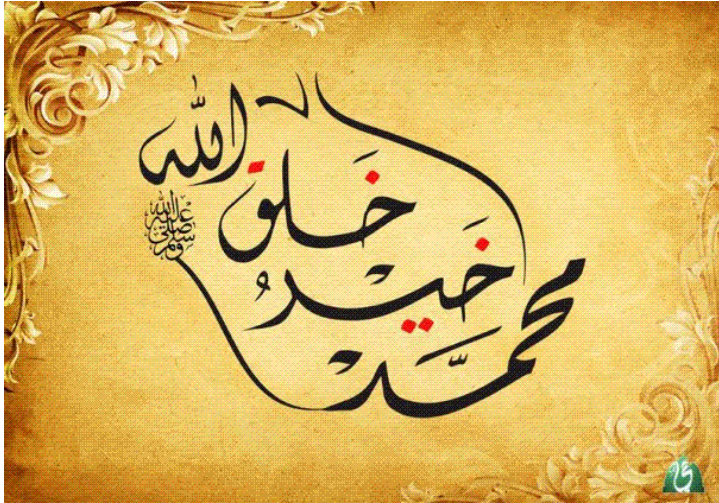 محمّد
خيرُ
خلق
الله
صلى الله عليه وسلم